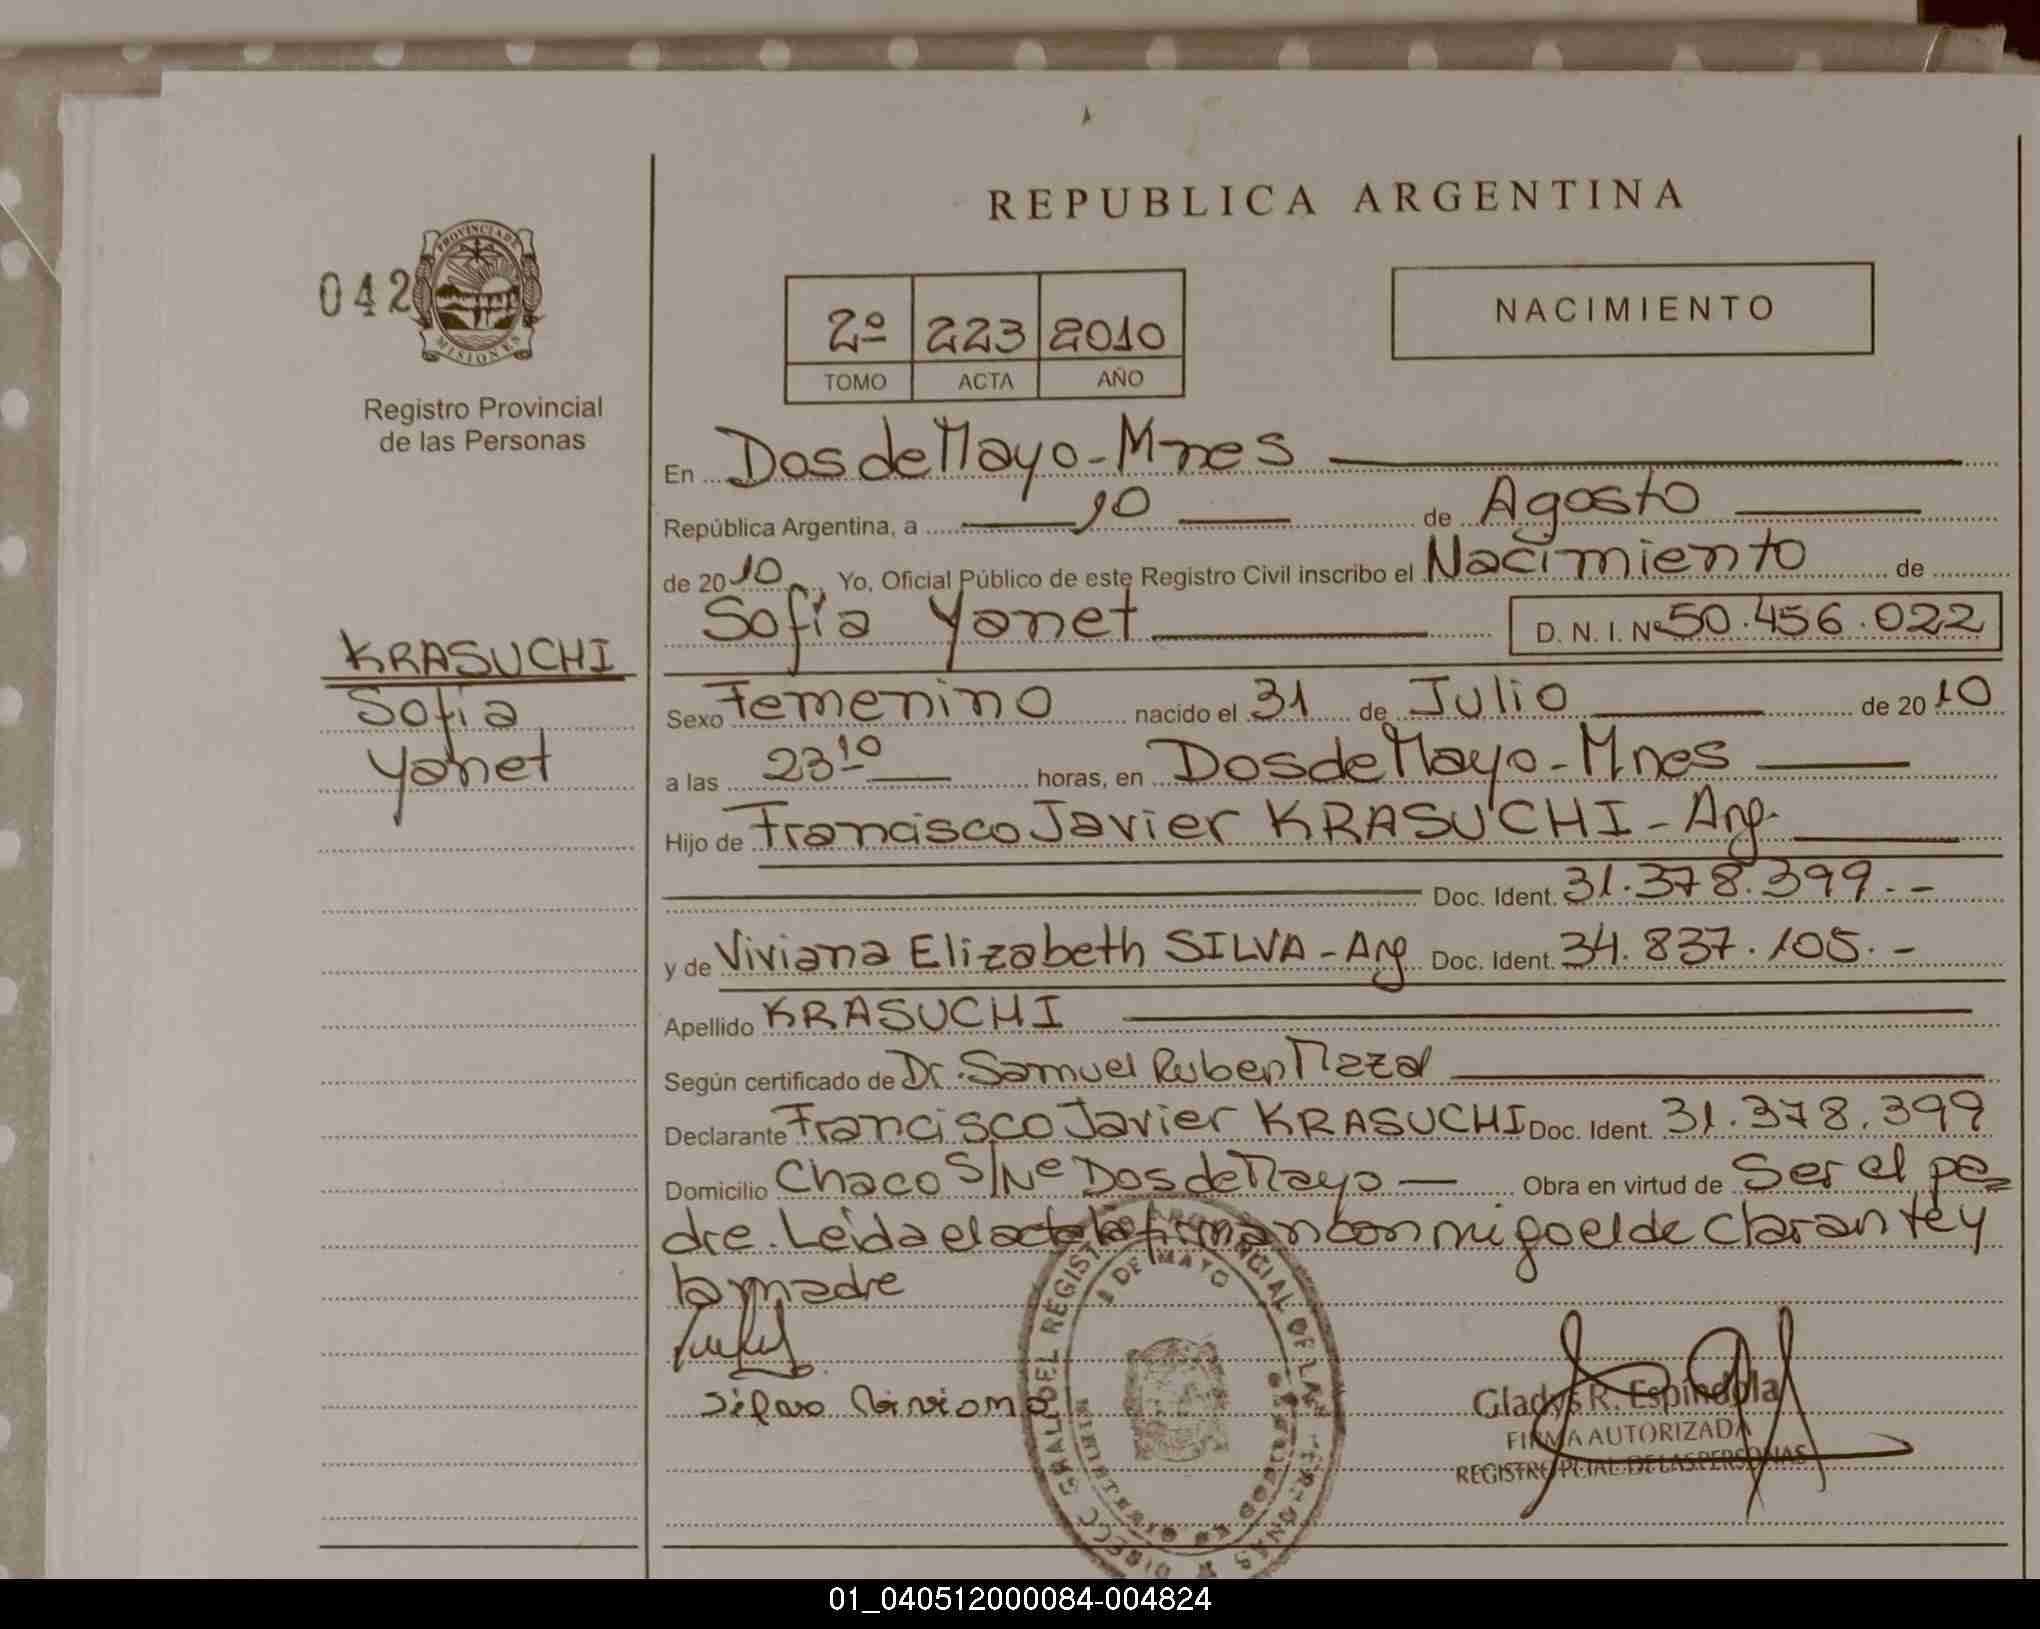 REPUBLICA ARGENTINA
042
PROVINCIA DE
MISIONES
Registro Provincial
de las Personas
2º 223 2010
TOMO ACTA AÑO
NACIMIENTO
En Dos de Mayo - Mnes
República Argentina, a 10 de Agosto
de 2010 Yo, Oficial Público de este Registro Civil inscribo el Nacimiento de
Sofía Yanet D. N. I. Nº 50.456.022
KRASUCHI
Sofía
Yanet
Sexo Femenino nacido el 31 de Julio de 2010
a las 23 10 horas, en Dos de Mayo - Mnes
Hijo de Francisco Javier KRASUCHI - Arg.
Doc. Ident. 31.378.399.-
y de Viviana Elizabeth SILVA - Arg Doc. Ident. 34.837.105.-
Apellido KRASUCHI
Según certificado de Dr. Samuel Ruben Mazal
Declarante Francisco Javier KRASUCHI Doc. Ident. 31.378.399
Domicilio Chaco S/Nº Dos de Mayo - Obra en virtud de Ser el pa=
dre. Leída el acta la firman conmigo el declarante y
la madre
Silva Viviana
DIRECC. GRAL DEL REGISTRO PROVINCIAL DE LAS PERSONAS
2 DE MAYO
Gladys R. Espindola
FIRMA AUTORIZADA
REGISTRO PCIAL. DE LAS PERSONAS
01_040512000084-004824